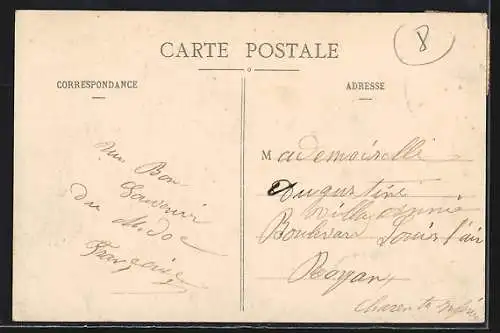 CARTE POSTALE
8
CORRESPONDANCE
ADRESSE
Un Bon
Souvenir
du Médoc
Françoise
Mademoiselle
Augustine
Villa
Boulevard
Royan
Charente Infre